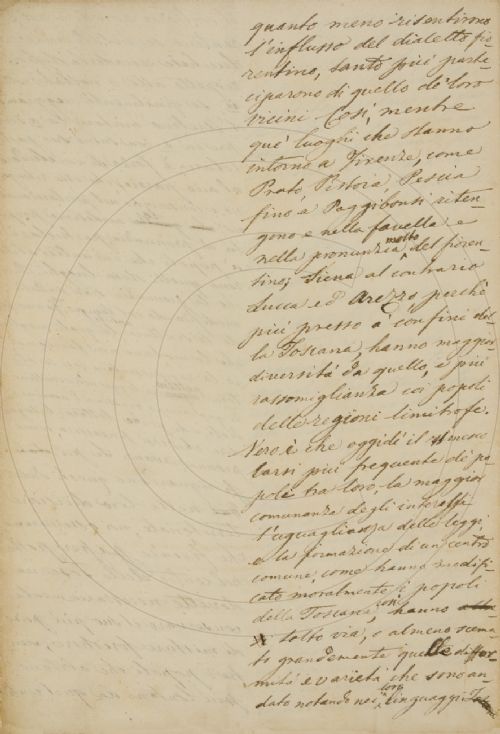 quanto meno risentirono
l'influsso del dialetto fio-
rentino, tanto più parte-
ciparono di quello de' loro
vicini. Così, mentre
que' luoghi che stanno
intorno a Firenze, come
Prato, Pistoia, Pescia
fino a Poggibonsi riten-
gono e nella favella e
nella pronunzia molto del fioren-
tino; Siena al contrario
Lucca ed Arezzo, perchè
più presso a' confini del-
la Toscana, hanno maggior
diversità da quello, e più
rassomiglianza coi popoli
delle regioni limitrofe.
Vero è che oggidì il mesco-
larsi più frequente de' po-
poli tra loro, la maggior
comunanza degli interessi
l'uguaglianza delle leggi,
e la formazione di un centro
comune, come hanno
cato moralmente i popoli
della Toscana, così hanno
tolto via, o almeno scema-
to grandemente quelle diffor-
mità e varietà che sono an-
dato notando nei loro linguaggi